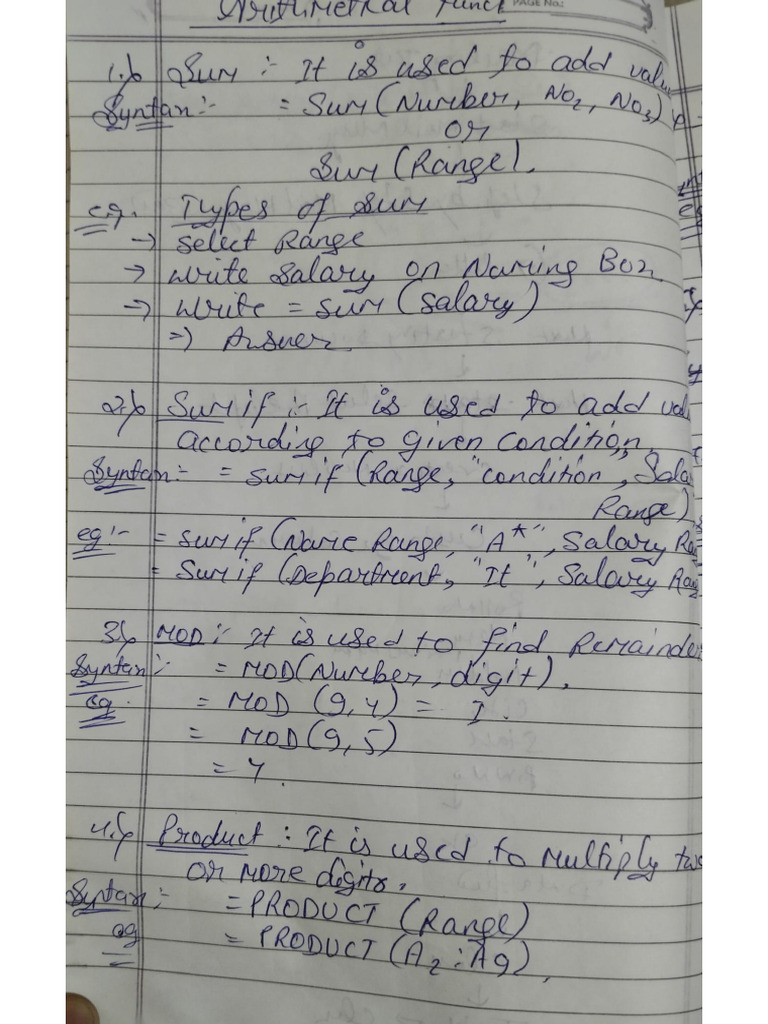 Arithmetical Funct
PAGE No.:
1.) Sum :- It is used to add valu
Syntax :- = Sum (Number, No2, No3)
or
Sum (Range).
e.g. Types of Sum
→ Select Range
→ Write Salary on Naming Box
→ Write = sum (salary)
=) Answer.
2.) Sum if :- It is used to add val
according to given condition.
Syntax :- = sum if (Range, "condition, Sala
Range)
eg :- = sum if (Name Range, "A*", Salary Ra
= Sum if (Department, "It", Salary Rang
3.) MOD :- It is used to find Remainde
Syntax :- = MOD (Number, digit).
eg. = MOD (9,4) = 1.
= MOD (9,5)
= 4.
4.) Product : It is used to multiply two
or more digits.
Syntax :- = PRODUCT (Range)
eg = PRODUCT (A2 : A9),